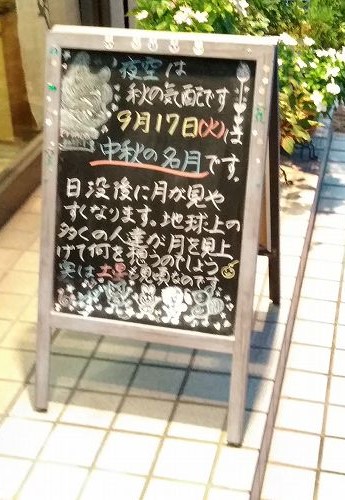 夜空は
秋の気配です
9月17日(火)は
中秋の名月です。
日没後に月が見や
すくなります。地球上の
多くの人達が月を見上
げて何を想うのでしょう
実は土星も見頃なのです。